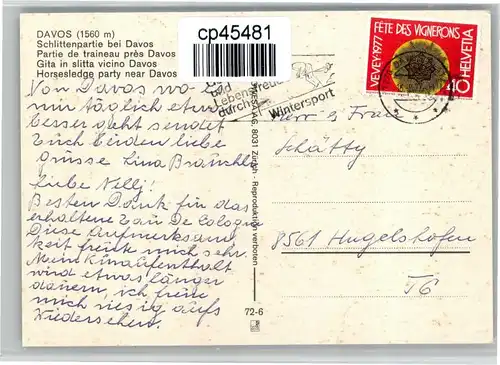 DAVOS (1560 m)
Schlittenpartie bei Davos
Partie de traineau près Davos
Gita in slitta vicino Davos
Horsesledge party near Davos
cp45481
Von Davos wo es
mir täglich etwas
besser geht sendet
Euch Beiden liebe
Grüsse Lina Bräuchli
Liebe Nelly!
Besten Dank für das
erhaltene Eau de Cologne
Diese Aufmerksam
keit freute mich sehr.
Mein Kuraufenthalt
wird etwas länger
dauern, ich freue
mich riesig aufs
Wiedersehen.
Lebensfreude
durch
Wintersport
FÊTE DES VIGNERONS
VEVEY 1977
HELVETIA
40
Herr & Frau
Schätty
8561 Hugelshofen
TG
AG, 8031 Zürich - Reproduktion verboten
72-6